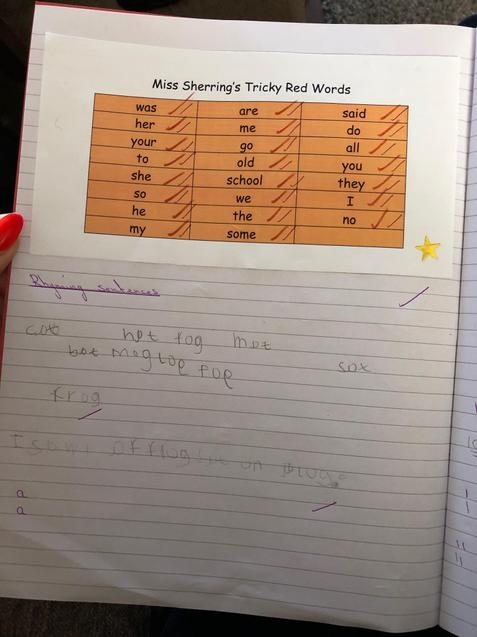 Miss Sherring's Tricky Red Words
was are said
her me do
your go all
to old you
she school they
so we I
he the no
my some
Rhyming sentences
hot fog mot
sox
frog
I saw
on
a
a